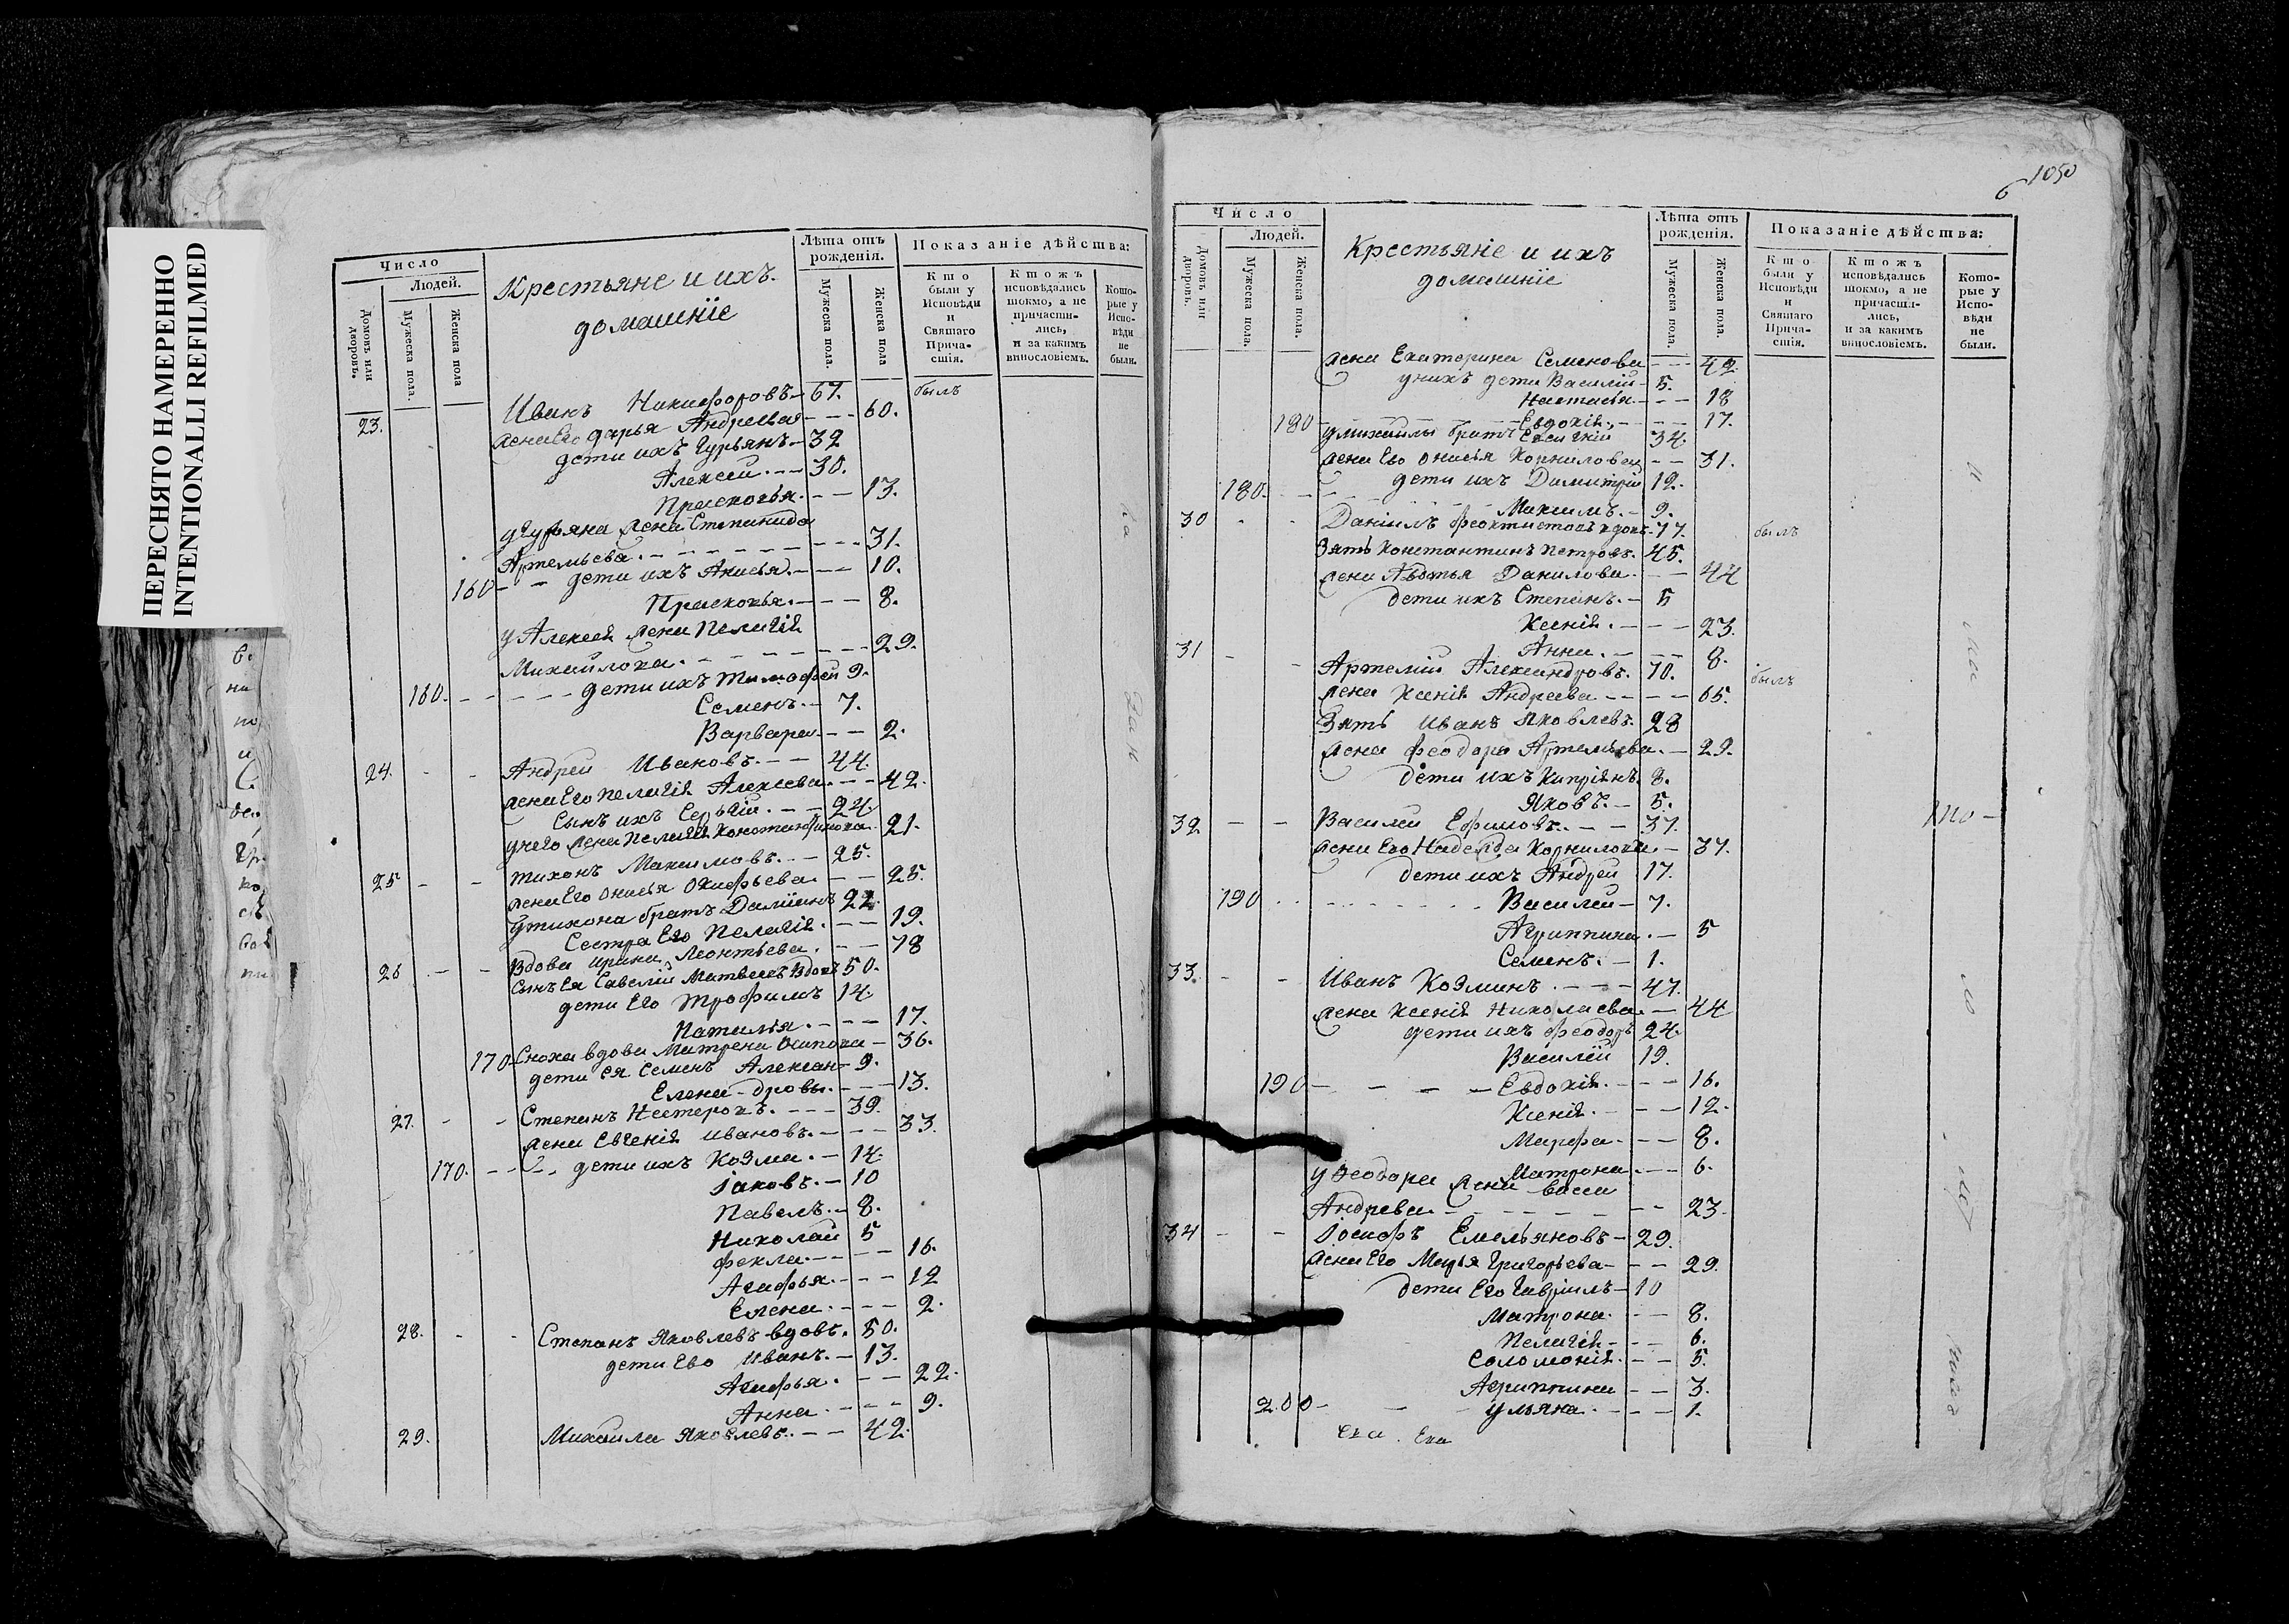 ПЕРЕСНЯТО НАМЕРЕННО
INTENTIONALLI REFILMED
Число
Людей.
Домовъ или дворовъ.
Мужеска пола.
Женска пола
Крестьяне и ихъ
домашніе
Лѣта отъ рожденія.
Мужеска пола.
Женска пола
Показаніе дѣйства:
Кто были у Исповѣди и Святаго Причастія.
Ктожъ исповѣдались токмо, а не причастились, и за какимъ винословіемъ.
Которые у Исповѣди не были.
23. Иванъ Никифоровъ - 67. былъ
жена Его дарья Андреева - - - 60.
дети ихъ Гурьянъ - 32
Алексеи - - 30.
Прасковья. - - - 13.
у Гурьяна жена Степанида
Артемьева. - - - 31.
160 - - дети ихъ Анисья. - - - 10.
Прасковья. - - - 8.
у Алексея жена Пелагія
Михаилова. - - - 29.
160. - - - дети ихъ Тимофеи 9.
Семенъ. - 7.
Варвара - - 2.
24. - - Андреи Ивановъ. - - 44.
жена Его пелагія Алексеева. - - - 42.
сынъ ихъ Сергіи. - - 24.
у него жена Пелагія Константинова. 21.
25 - - тихонъ Максимовъ. - - 25.
жена Его Онисья - - 25.
у тихона братъ Даміанъ 22.
Сестра Его Пелагія. - - - 19.
26 - - Вдова ирина Леонтьева. - - - 78
Сынъ Ея Савелій Матвеевъ вдовъ 50.
дети Его Трофимъ 14.
Наталья. - - - 17.
170 - Сноха вдова Матрена Осипова - 36.
дети ея Семенъ Алексан- 9.
Елена - дровы. - - - 13.
27. - - Степанъ Нестеровъ. - - - 39.
жена Евгенія ивановъ. - - - 33.
170. - - - дети ихъ Козма. - 14.
Іаковъ. - 10
Павелъ. - 8.
Николаи 5
фекла. - - - 16.
Агафья. - - - 12
Елена. - - - 2.
28. - - Степанъ Яковлевъ вдовъ. 50.
дети Ево Иванъ. - 13.
Агафья. - - - 22.
Анна. - - - 9.
29. Михаила Яковлевъ. - - 42.
1050
6
Число
Людей.
Домовъ или дворовъ.
Мужеска пола.
Женска пола.
Крестьяне и ихъ
домашніе
Лѣта отъ рожденія.
Мужеска пола.
Женска пола.
Показаніе дѣйства:
Кто были у Исповѣди и Святаго Причастія.
Ктожъ исповѣдались токмо, а не причастились, и за какимъ винословіемъ.
Которые у Исповѣди не были.
жена Екатерина Семенова - - - 42.
у нихъ дети Василій - 5.
Настасья. - - - 18
180 - - - Евдокія. - - - 17.
у михаилы братъ 34.
жена Ево онисья Корнилова - - 31.
180. - - дети ихъ Димитрій 12.
Максимъ. - 9.
30 - - Даніилъ феоктистовъ вдовъ - 77. былъ
Зять Константинъ Петровъ. 45.
жена Авдотья Данилова. - - 44
дети ихъ Степанъ. - 5
Ксенія. - - - 23.
Анна. - - - 8.
31 - - Артеміи Александровъ. 70. былъ
жена Ксенія Андреева - - - 65.
Зять Иванъ Яковлевъ. 28
жена феодора Артемьева. - 29.
дети ихъ Кипріянъ. 8.
Яковъ. - 5.
32 - - Василеи Ефимовъ. - - 37.
жена Ево Надежда Корнилова. - 37.
дети ихъ Андреи 17.
190 - - - Василеи - 7.
Агриппина. - 5
Семенъ. - 1.
33. - - Иванъ Козминъ. - - - 47.
жена Ксенія Николаева. - 44
дети ихъ феодоръ 24.
Василеи 19.
190 - - - Евдокія. - - - 16.
Ксенія. - - - 12.
Марфа. - - - 8.
Матрона. - - - 6.
у Феодора жена Васса
Андреева - - - 23.
34 - - Іосифъ Емельяновъ - 29.
жена Его Марья Григорьева - - - 29.
дети Его Гавріилъ - 10
Матрона. - - 8.
Пелагія - - - 6.
Соломонія. - - - 5.
Агриппина - - 3.
200 - - - ульяна. - - - 1.